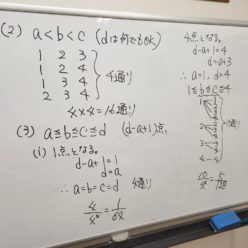 (2) a<b<c (dは何でもOK)
1 2 3
1 2 4
1 3 4
2 3 4
4通り
4×4=16通り
(3) a≦b≦c≦d (d-a+1)点
(i) 1点となる。
d-a+1=1
d=a
∴ a=b=c=d 4通り
4/4⁴ = 1/64
4点となる。
d-a+1=4
d=a+3
∴ a=1, d=4
1≦b≦c≦4